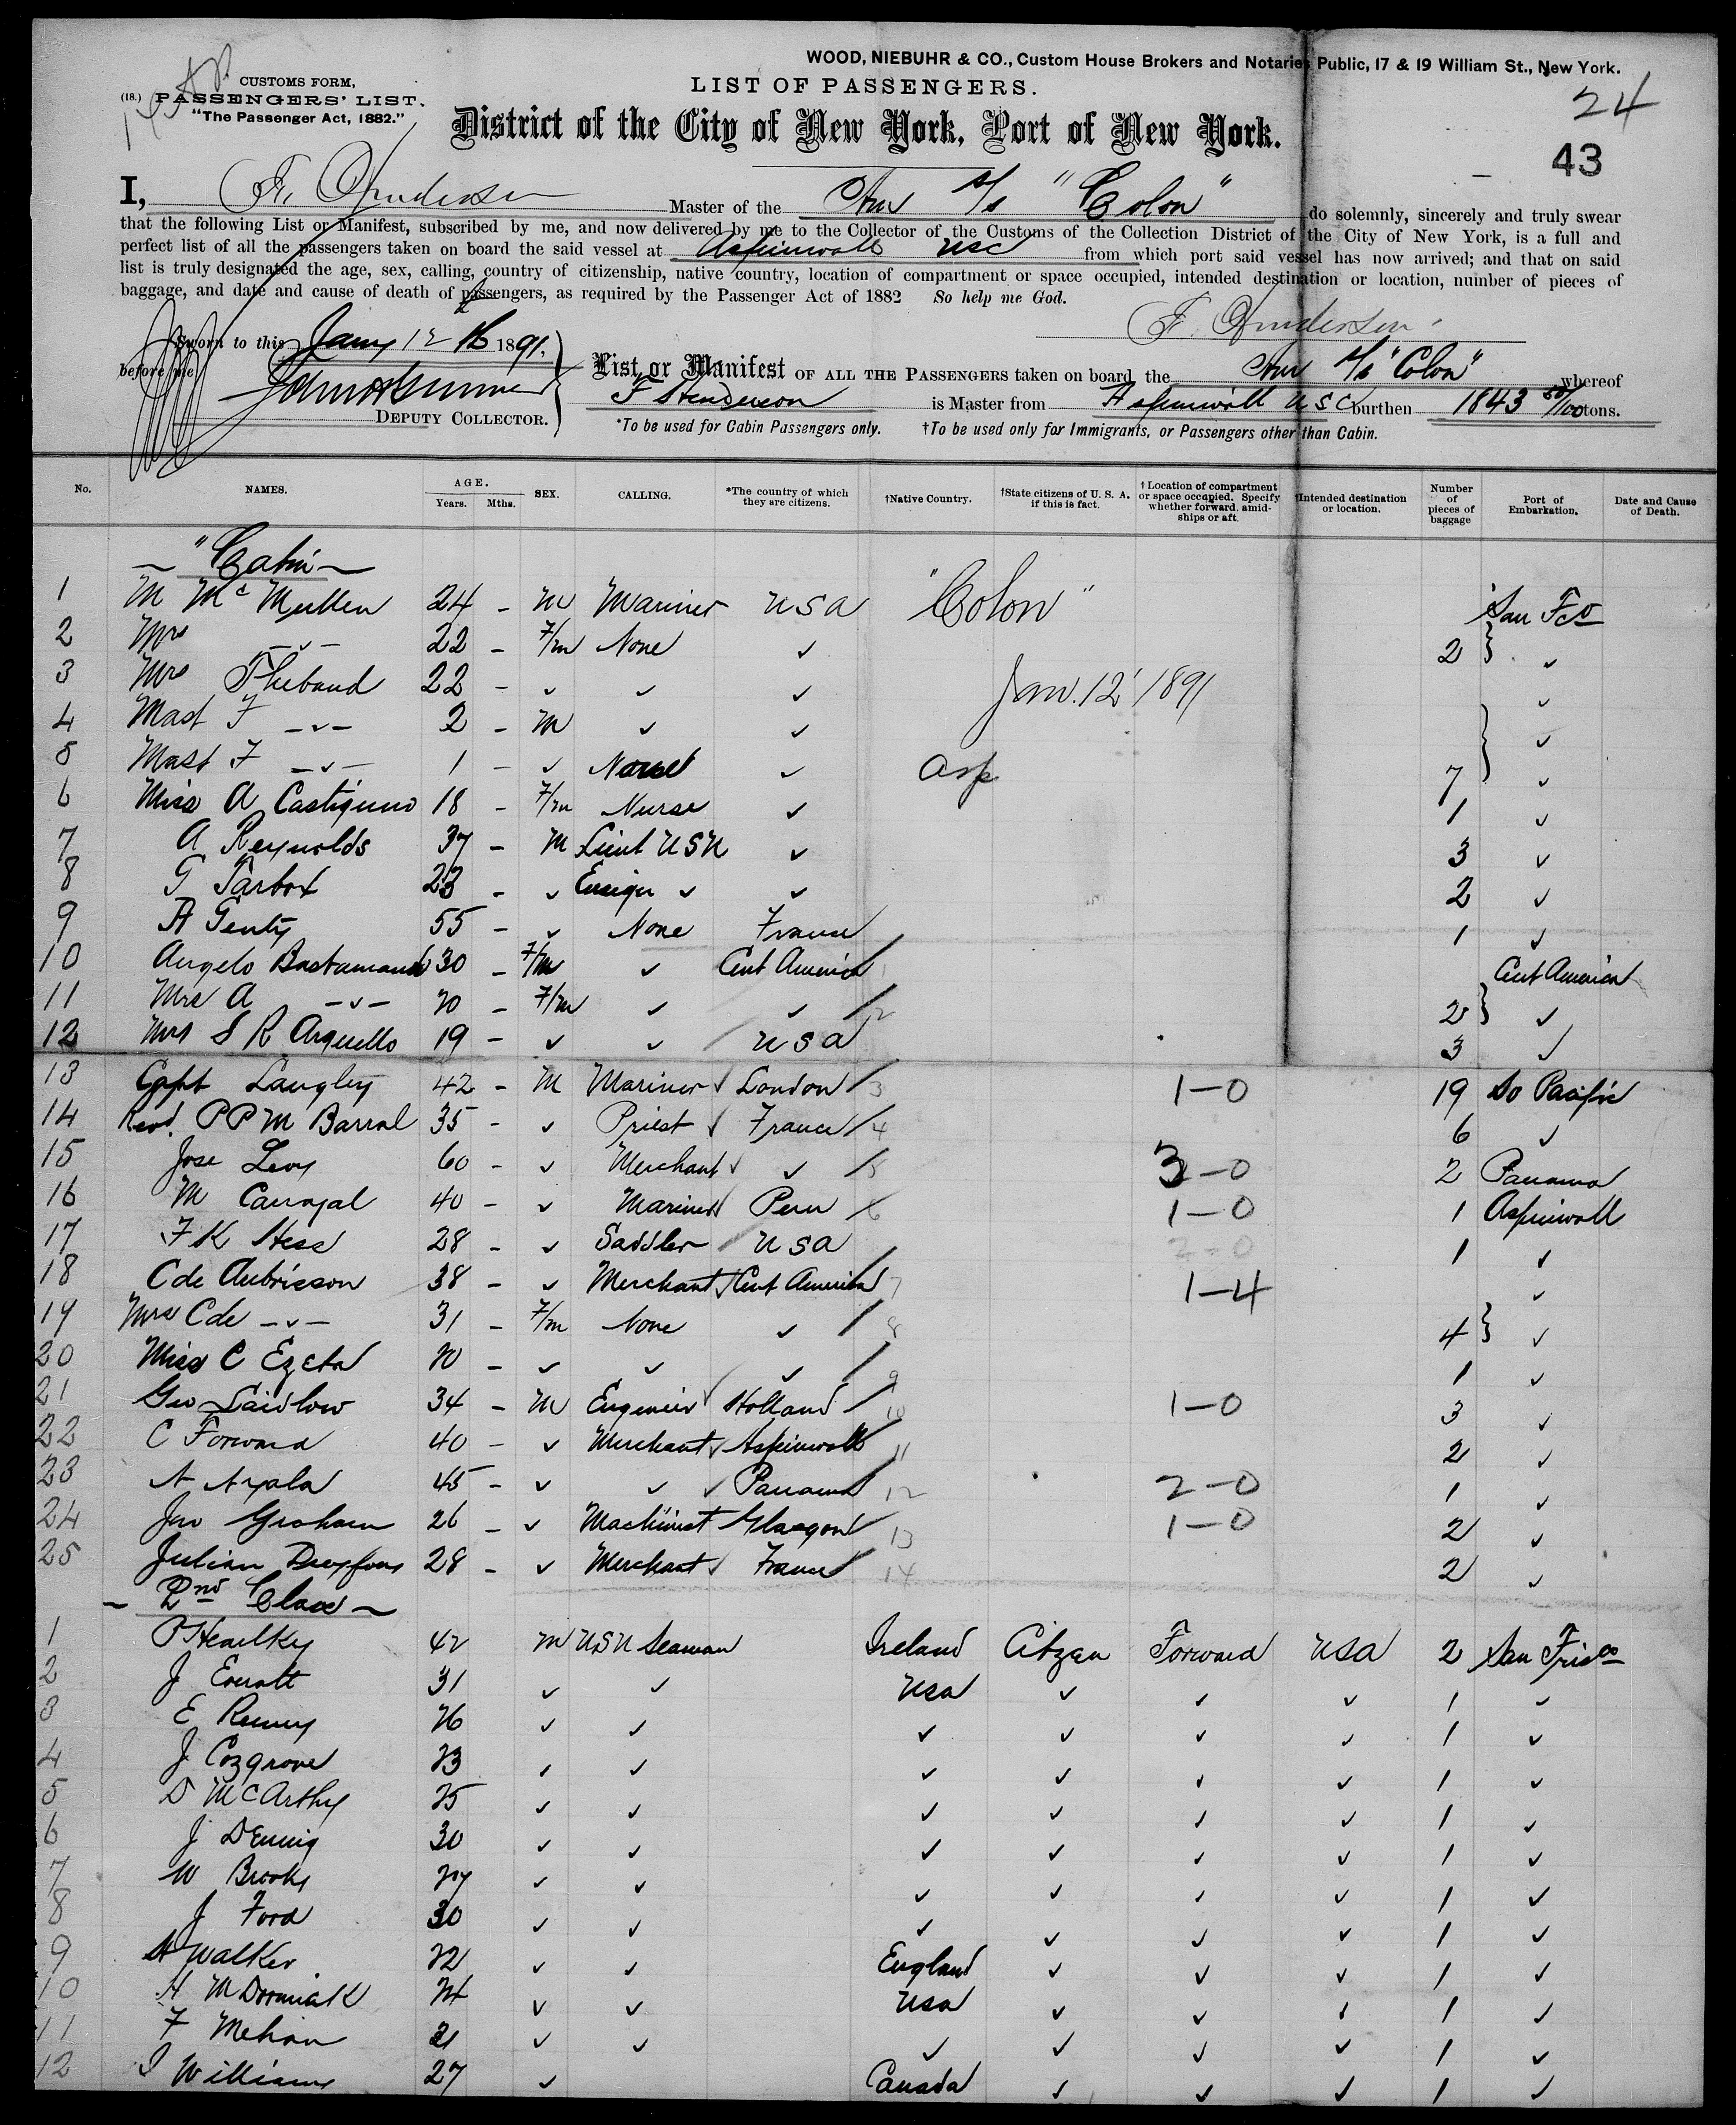 WOOD, NIEBUHR & CO., Custom House Brokers and Notaries Public, 17 & 19 William St., New York.
LIST OF PASSENGERS.
CUSTOMS FORM,
(18.) PASSENGERS' LIST.
"The Passenger Act, 1882."
24
District of the City of New York, Port of New York.
43
I, F. Henderson Master of the Am S/s "Colon" do solemnly, sincerely and truly swear
that the following List or Manifest, subscribed by me, and now delivered by me to the Collector of the Customs of the Collection District of the City of New York, is a full and
perfect list of all the passengers taken on board the said vessel at Aspinwall USC from which port said vessel has now arrived; and that on said
list is truly designated the age, sex, calling, country of citizenship, native country, location of compartment or space occupied, intended destination or location, number of pieces of
baggage, and date and cause of death of passengers, as required by the Passenger Act of 1882 So help me God.
F. Henderson
Sworn to this Jany 12 th 1891.
before me
DEPUTY COLLECTOR.
List or Manifest OF ALL THE PASSENGERS taken on board the Am S/s "Colon" whereof
F Henderson is Master from Aspinwall USC burthen 1843 50/100 tons.
*To be used for Cabin Passengers only. †To be used only for Immigrants, or Passengers other than Cabin.
No. NAMES. AGE. Years. Mths. SEX. CALLING. *The country of which they are citizens. †Native Country. †State citizens of U. S. A. if this is fact. †Location of compartment or space occupied. Specify whether forward, amidships or aft. †Intended destination or location. Number of pieces of baggage Port of Embarkation. Date and Cause of Death.
"Cabin
1 M McMullen 24 - M Mariner USA "Colon" San Fco
2 Mrs -✓- 22 - F/m None ✓ 2 } ✓
3 Mrs Thebaud 22 - ✓ ✓ ✓ Jan. 12 1891 ✓
4 Mast F -✓- 2 - M ✓ ✓ ✓
5 Mast F -✓- 1 - ✓ ✓ Asp 7 } ✓
6 Miss A 18 - F/m Nurse ✓ 1 ✓
7 A Reynolds 37 - M Lieut USN ✓ 3 ✓
8 G Tarbox 23 - ✓ Ensign ✓ ✓ 2 ✓
9 A Genty 55 - ✓ None France 1 ✓
10 Angelo 30 - F/m ✓ Cent America 1 Cent America
11 Mrs A -✓- 20 - F/m ✓ ✓ / 2 2 } ✓
12 Mrs S R Arguello 19 - ✓ ✓ / USA 3 ✓
13 Capt Langley 42 - M Mariner ✓ London / 3 1-0 19 So Pacific
14 Revd. P P M Barral 35 - ✓ Priest ✓ France / 4 6 ✓
15 Jose Levy 60 - ✓ Merchant ✓ ✓ / 5 3-0 2 Panama
16 M Carvajal 40 - ✓ Mariner ✓ Peru / 6 1-0 1 Aspinwall
17 F K Hess 28 - ✓ Saddler / USA 2-0 1 ✓
18 C de Aubrisson 38 - ✓ Merchant ✓ Cent America / 7 1-4 ✓
19 Mrs C de -✓- 31 - F/m None ✓ / 8 4 } ✓
20 Miss C Ezeta 20 - ✓ ✓ ✓ / 9 1 ✓
21 Geo Laidlow 34 - M Engineer ✓ Holland / 10 1-0 3 ✓
22 C Forward 40 - ✓ Merchant ✓ Aspinwall / 11 2 ✓
23 A Ayala 45 - ✓ ✓ ✓ Panama / 12 2-0 1 ✓
24 Jno Graham 26 - ✓ Machinist Glasgow / 13 1-0 2 ✓
25 Julian Dreyfous 28 - ✓ Merchant ✓ France / 14 2 ✓
2nd Class
1 P 42 M USN Seaman Ireland Citzen Forward USA 2 San Frisco
2 J 31 ✓ ✓ USA ✓ ✓ ✓ 1 ✓
3 E 26 ✓ ✓ ✓ ✓ ✓ ✓ 1 ✓
4 J Cozgrove 23 ✓ ✓ ✓ ✓ ✓ ✓ 1 ✓
5 D McArthy 25 ✓ ✓ ✓ ✓ ✓ ✓ 1 ✓
6 J 30 ✓ ✓ ✓ ✓ ✓ ✓ 1 ✓
7 W Brooks 27 ✓ ✓ ✓ ✓ ✓ ✓ 1 ✓
8 J Ford 30 ✓ ✓ ✓ ✓ ✓ ✓ 1 ✓
9 H Walker 22 ✓ ✓ England ✓ ✓ ✓ 1 ✓
10 H 24 ✓ ✓ USA ✓ ✓ ✓ 1 ✓
11 F Mehan 21 ✓ ✓ ✓ ✓ ✓ ✓ 1 ✓
12 Williams 27 ✓ Canada ✓ ✓ ✓ 1 ✓